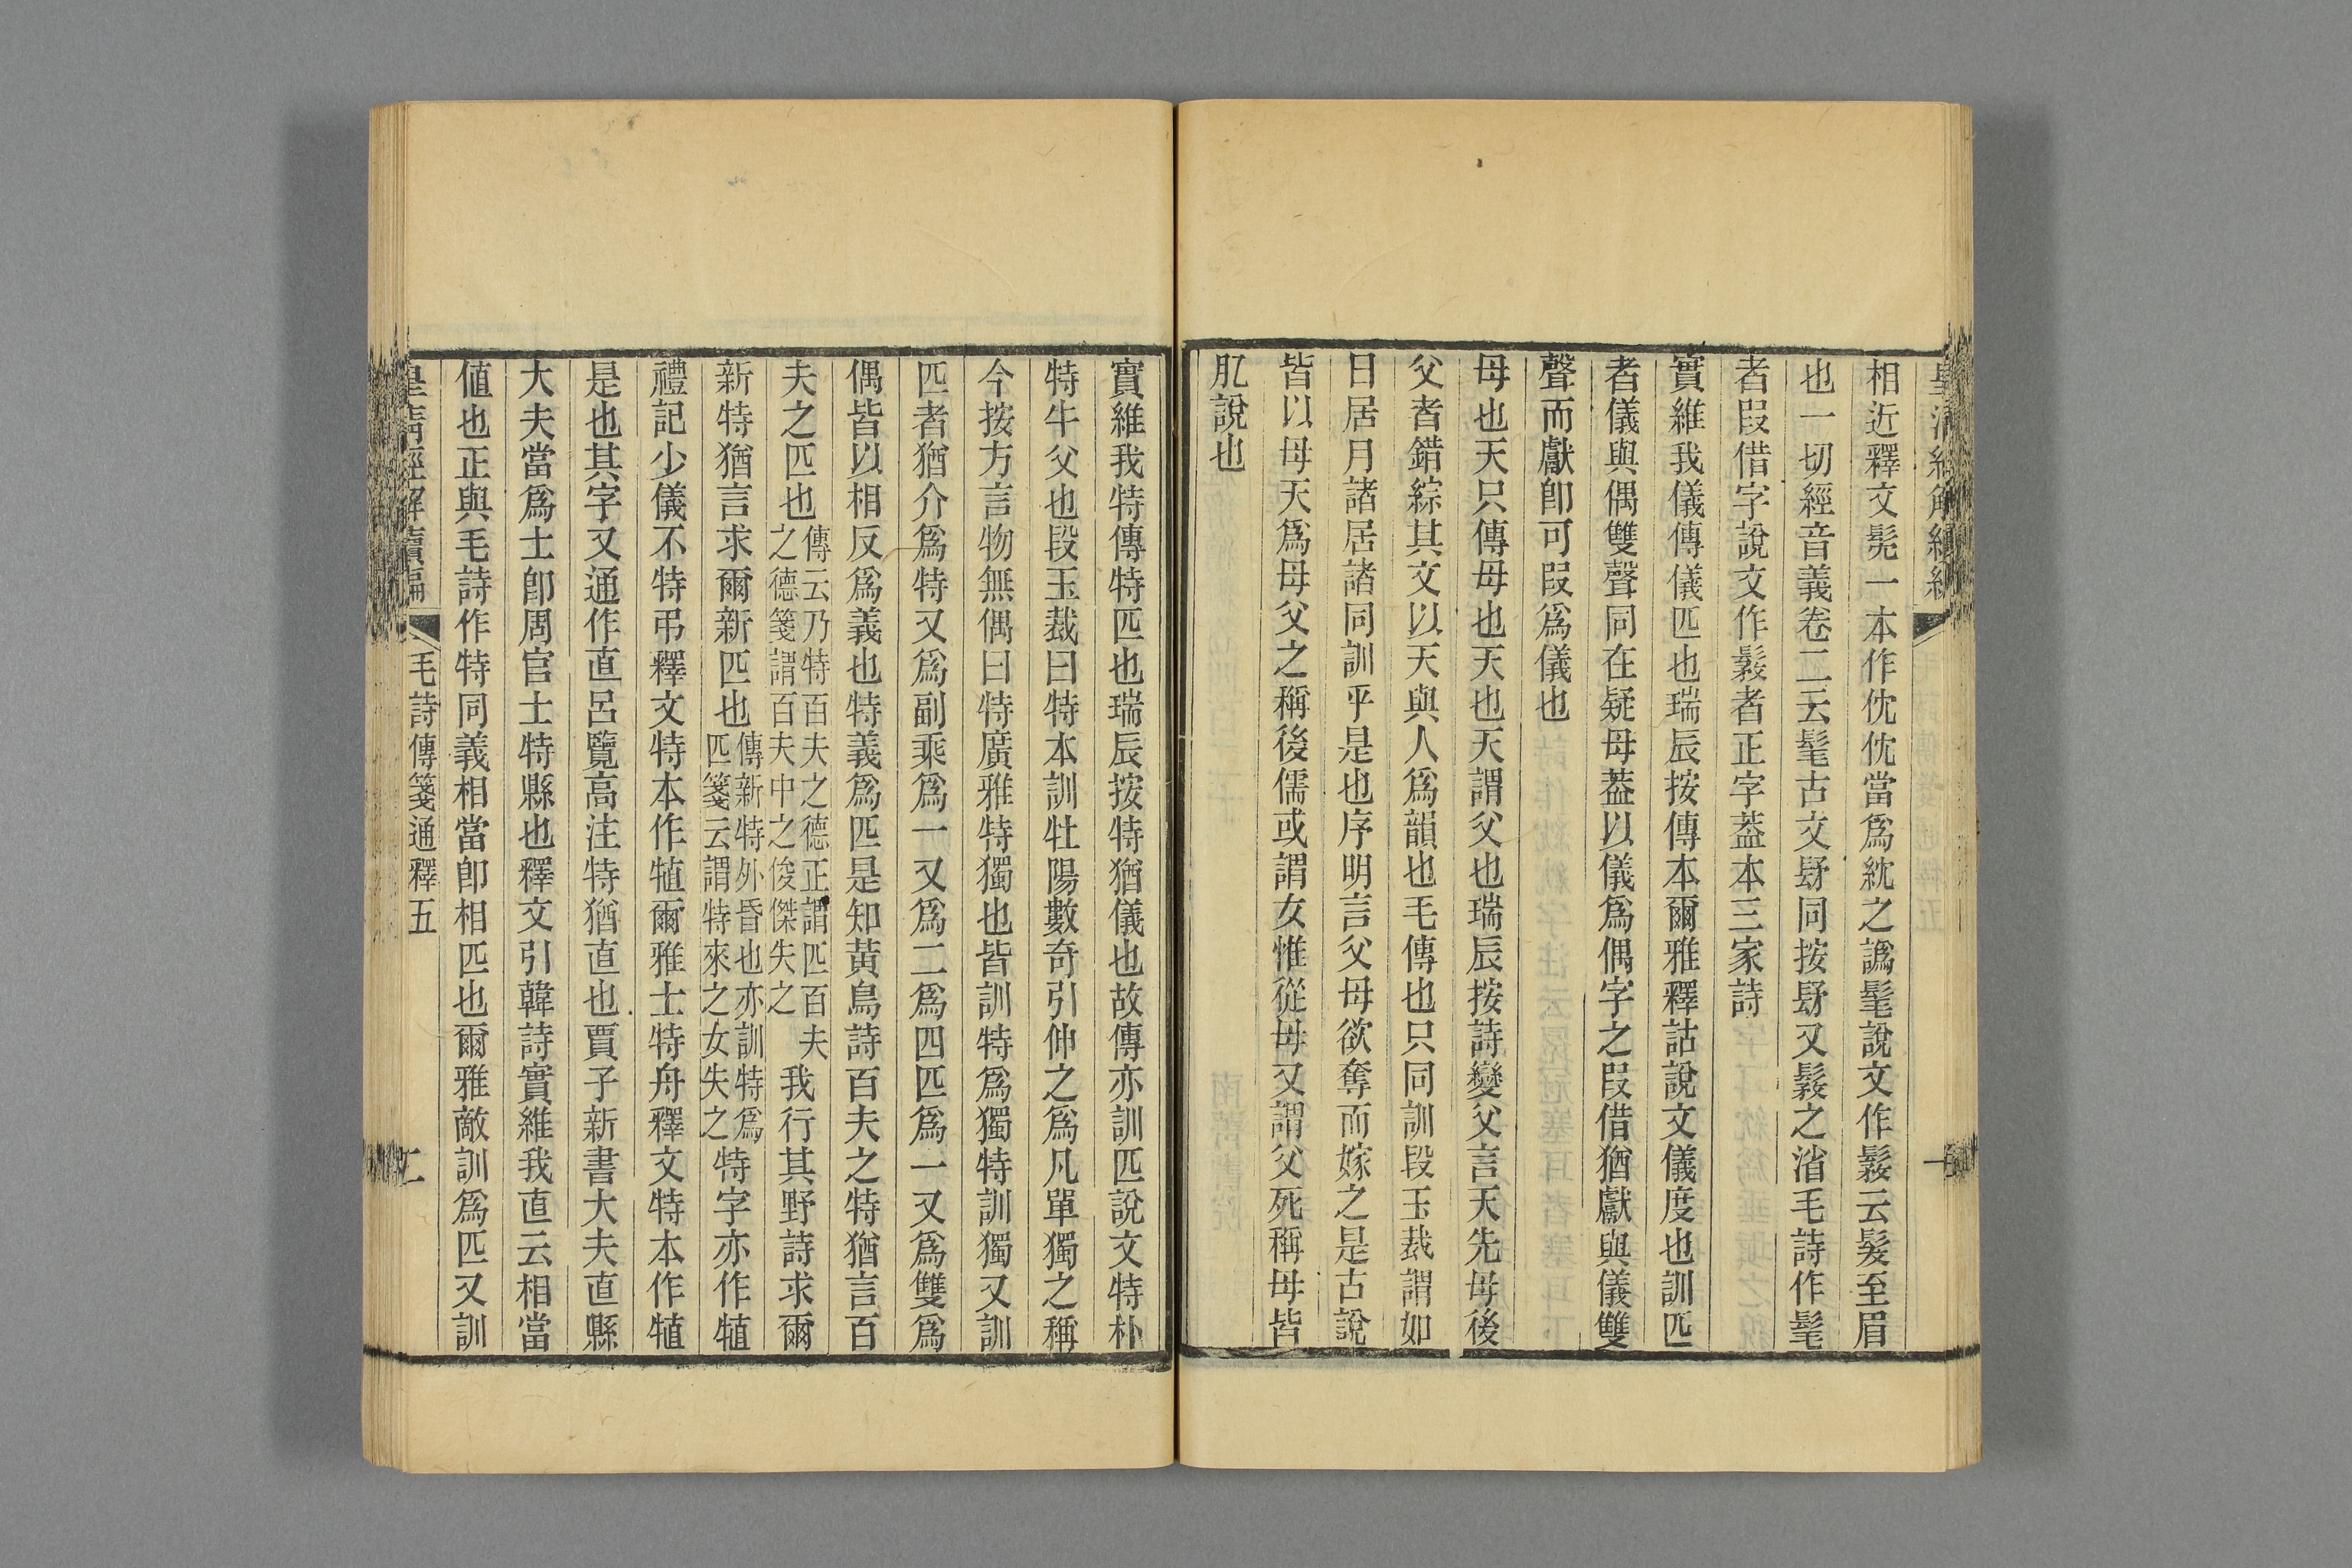 皇清經解續編
一
相近釋文髧一本作优优當爲紞之譌髦說文作髳云髮至眉
也一切經音義卷二云髦古文髳同按髳又髳之渻毛詩作髦
者叚借字說文作髳者正字葢本三家詩
實維我儀傳儀匹也瑞辰按傳本爾雅釋詁說文儀度也訓匹
者儀與偶雙聲同在疑母葢以儀爲偶字之叚借猶獻與儀雙
聲而獻卽可叚爲儀也
母也天只傳母也天也天謂父也瑞辰按詩變父言天先母後
父者錯綜其文以天與人爲韻也毛傳也只同訓段玉裁謂如
日居月諸居諸同訓乎是也序明言父母欲奪而嫁之是古說
皆以母天爲母父之稱後儒或謂女惟從母又謂父死稱母皆
肊說也
實維我特傳特匹也瑞辰按特猶儀也故傳亦訓匹說文特朴
特牛父也段玉裁曰特本訓牡陽數奇引伸之爲凡單獨之稱
今按方言物無偶曰特廣雅特獨也皆訓特爲獨特訓獨又訓
匹者猶介爲特又爲副乘爲一又爲二爲四匹爲一又爲雙爲
偶皆以相反爲義也特義爲匹是知黃鳥詩百夫之特猶言百
夫之匹也傳云乃特百夫之德正謂匹百夫之德箋謂百夫中之俊傑失之我行其野詩求爾
新特猶言求爾新匹也傳新特外昏也亦訓特爲匹箋云謂特來之女失之特字亦作犆
禮記少儀不特弔釋文特本作犆爾雅士特舟釋文特本作犆
是也其字又通作直呂覽高注特猶直也賈子新書大夫直縣
大夫當爲士卽周官士特縣也釋文引韓詩實維我直云相當
値也正與毛詩作特同義相當卽相匹也爾雅敵訓爲匹又訓
皇清經解續編
毛詩傳箋通釋五
二